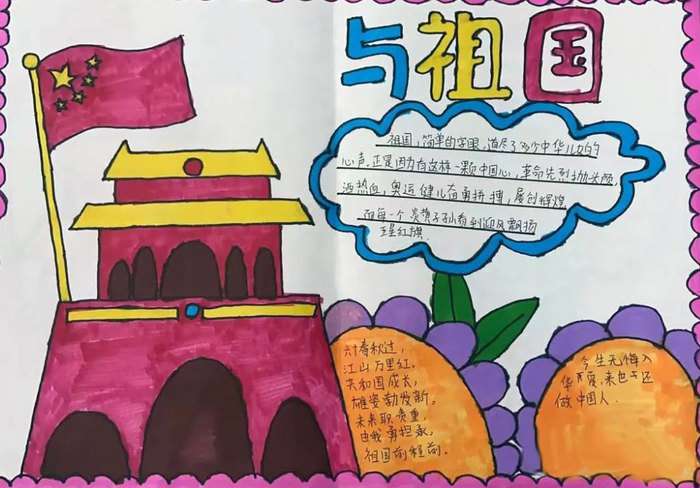 与祖国
祖国,简单的字眼,道尽了万个中华儿女的
心声.正是因为有这样一颗中国心,革命先烈抛头颅,
洒热血,奥运健儿奋勇拼搏,屡创辉煌
而每一个炎黄子孙看到迎风飘扬
五星红旗.
六十春秋过,
江山万里红。
共和国成长,
雄姿勃发新。
未来职责重,
由我勇担承,
祖国前程前。
今生无悔入
华夏,来世还
做中国人.